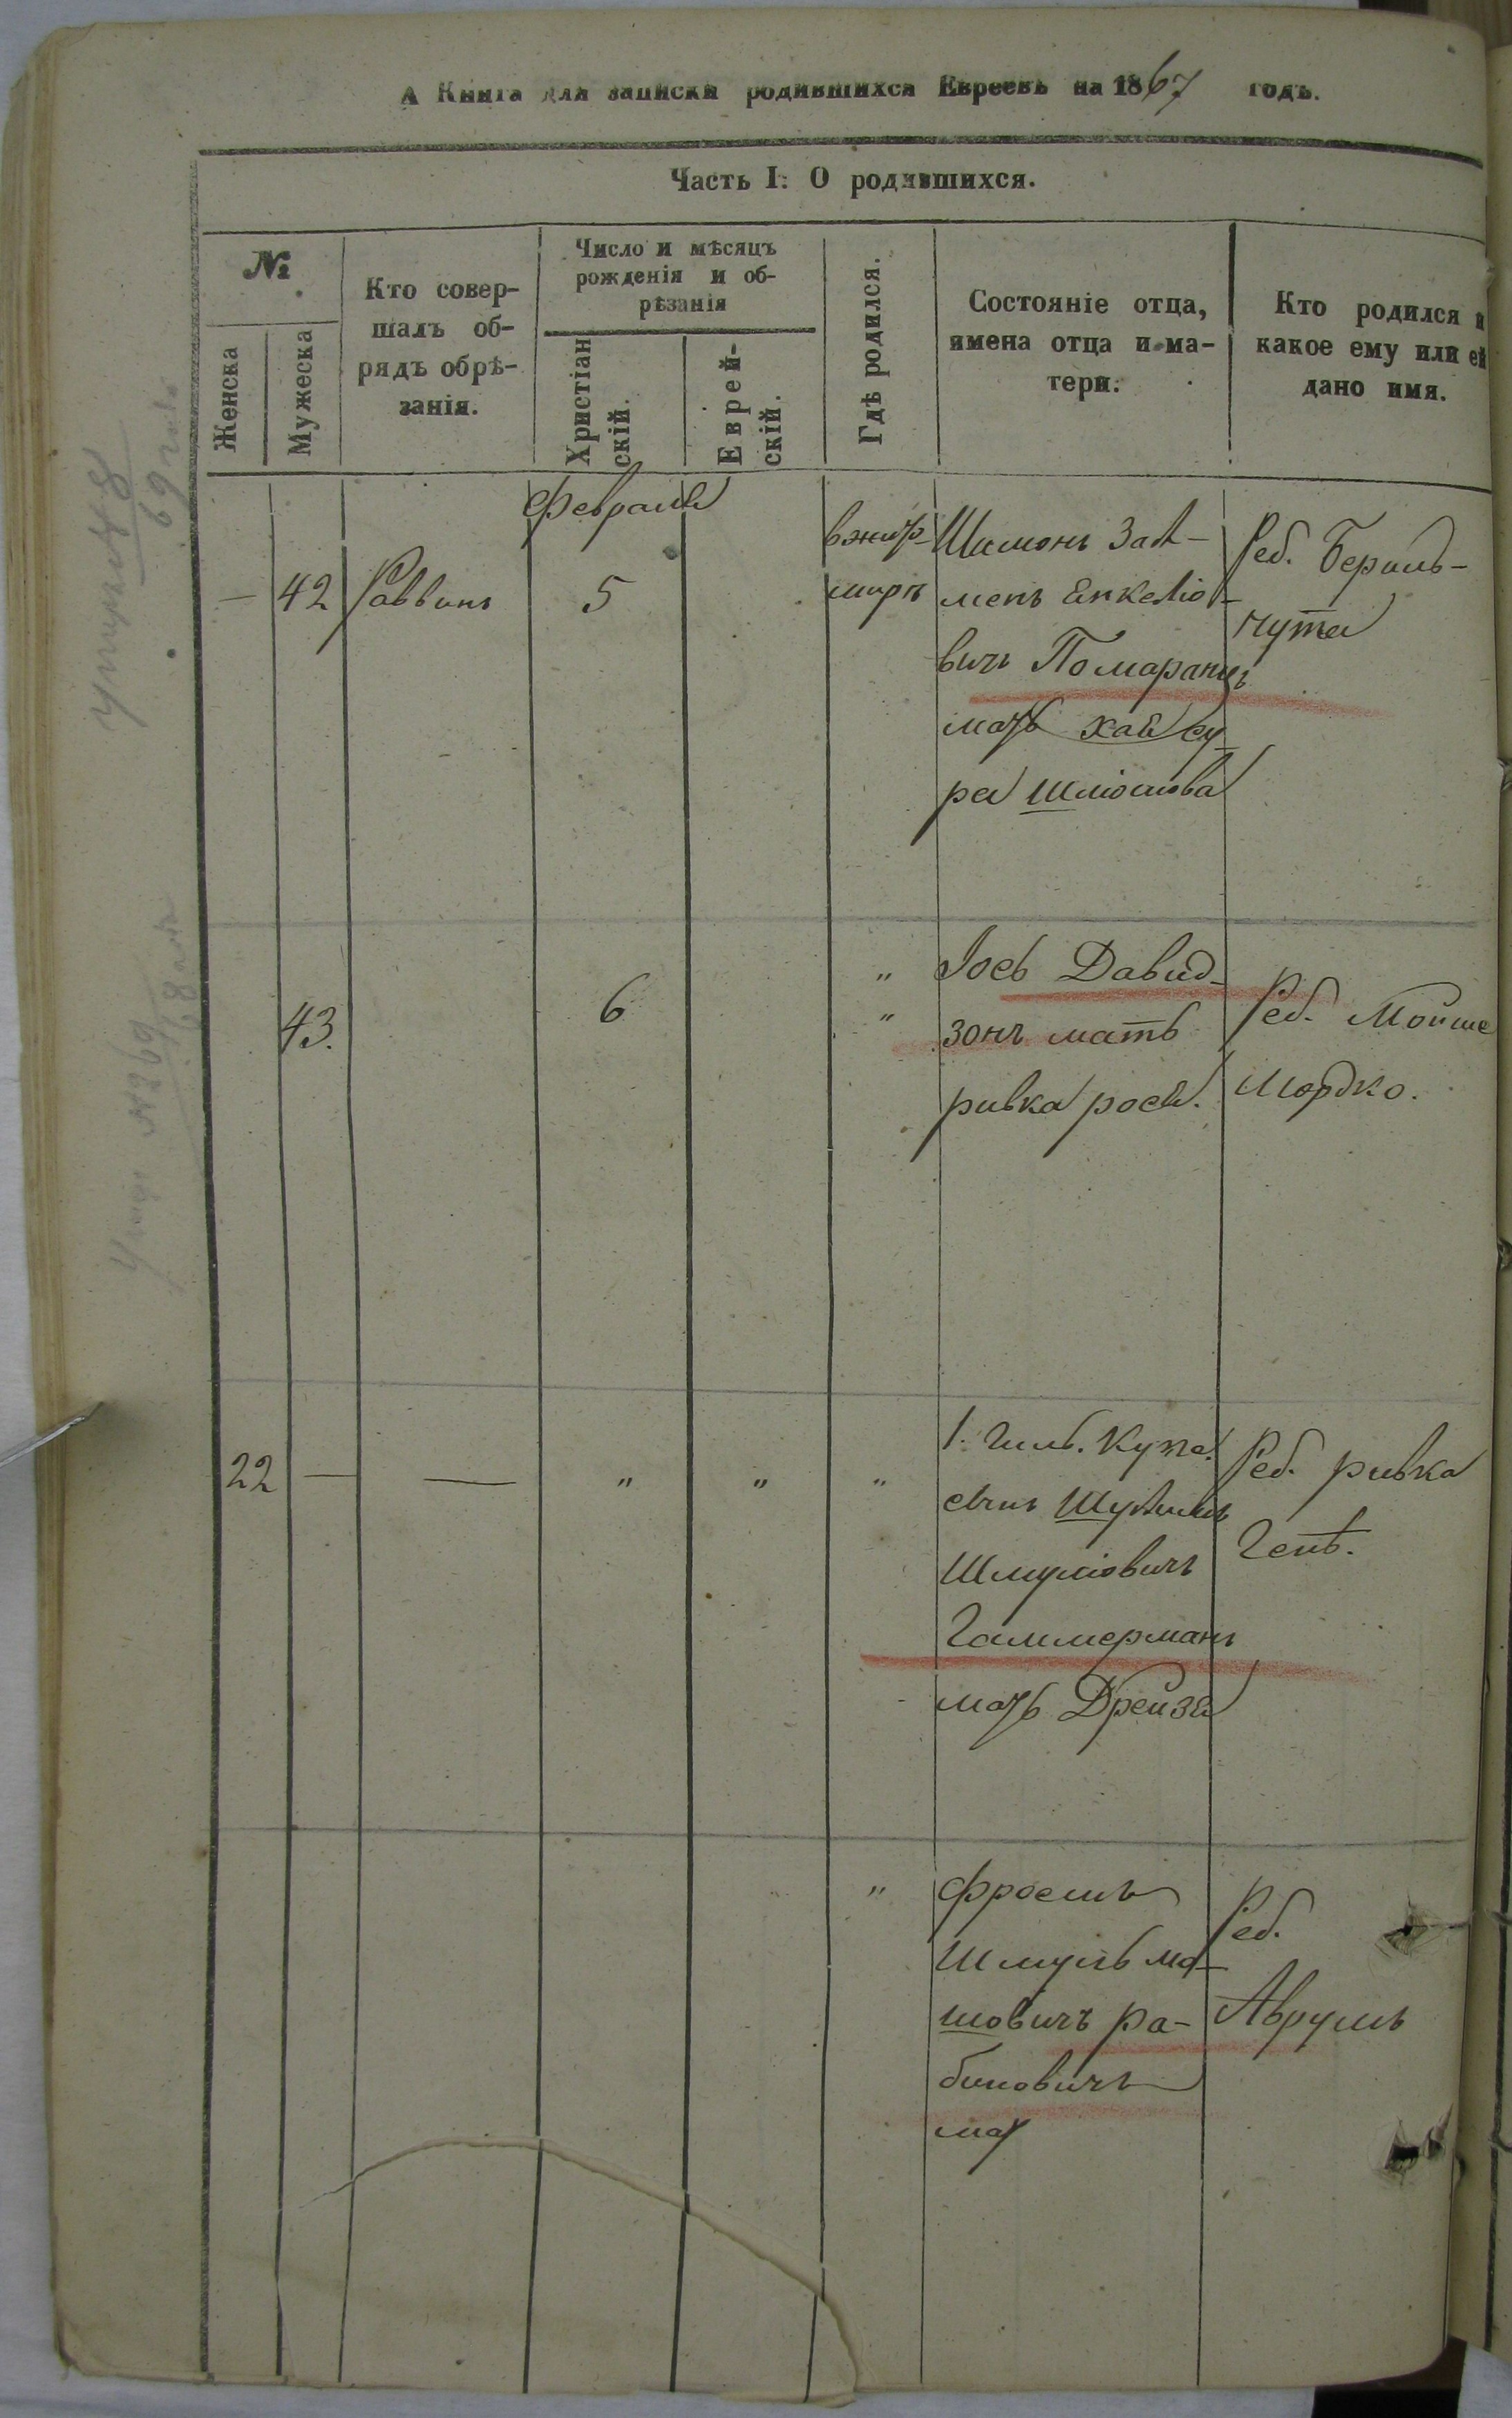 А Книга для записки родившихся Евреевъ на 1867 годъ.
Часть I. О родившихся.
№
Женска
Мужеска
Кто совер-
шалъ об-
рядъ обрѣ-
занія.
Число и мѣсяцъ
рожденія и об-
рѣзанія
Христіан
скій.
Еврей-
скій.
Гдѣ родился.
Состояніе отца,
имена отца и ма-
тери.
Кто родился и
какое ему или ей
дано имя.
Февраля
— 42 Раввинъ 5
вжит-
мирѣ
Шимонъ Зал-
менъ Енкеліо-
вичъ Помаранцъ
мать Хая Су-
ра Шліомова
Реб. Бериль-
чута
43. 6 " "
Іось Давид-
зонъ мать
ривка рося.
Реб. Мойше
Мордко.
22 — — " " "
1. гиль. Купе.
сынъ Шулимъ
Шмуліовичъ
Гаммерманъ
мать Дрейзя
Реб. ривка
Геня.
"
Фроимъ
Шмуль мо-
шовичъ ра-
биновичъ
мат
Реб.
Аврумъ
Умеръ 48
69 года
Умер №69
68 года